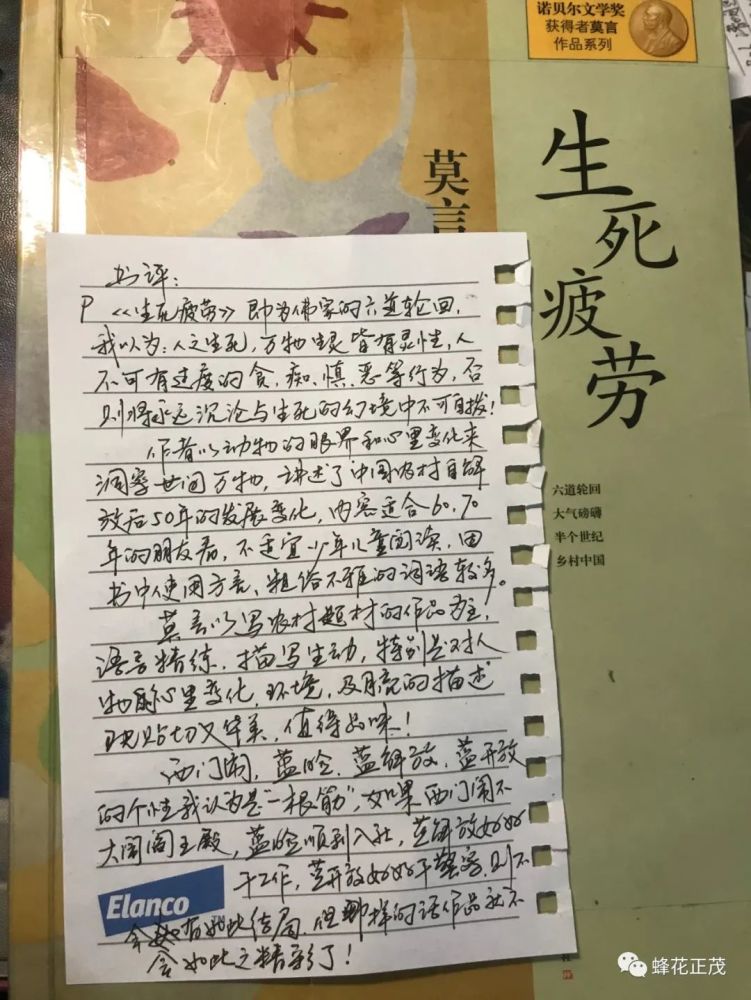 诺贝尔文学奖
获得者莫言
作品系列
生死疲劳
莫言
六道轮回
大气磅礴
半个世纪
乡村中国
书评：
P 《生死疲劳》即为佛家的六道轮回，
我以为：人之生死，万物生灵皆有灵性，人
不可有过度的贪、痴、慎、恶等行为，否
则将永远沉沦与生死的幻境中不可自拔！
作者以动物的眼界和心里变化来
洞察世间万物，讲述了中国农村自解
放后50年的发展变化，内容适合60、70
年的朋友看，不适宜少年儿童阅读，因
书中使用方言、粗俗不雅的词语较多。
莫言以写农村题材的作品为主，
语言精练，描写生动，特别是对人
物的心里变化，环境，及月亮的描述
既贴切又华美，值得品味！
西门闹，蓝脸，蓝解放，蓝开放
的个性我认为是“一根筋”，如果西门闹不
大闹阎王殿，蓝脸顺利入社，蓝解放好好
干工作，蓝开放好好干警察，则不
会有如此结局，但那样的话作品就不
会如此之精彩了！
Elanco
蜂花正茂